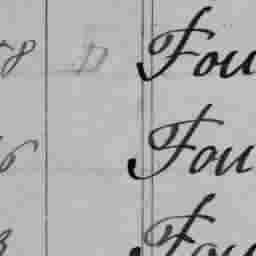 8 D Fou
6 Fou
3 Fou